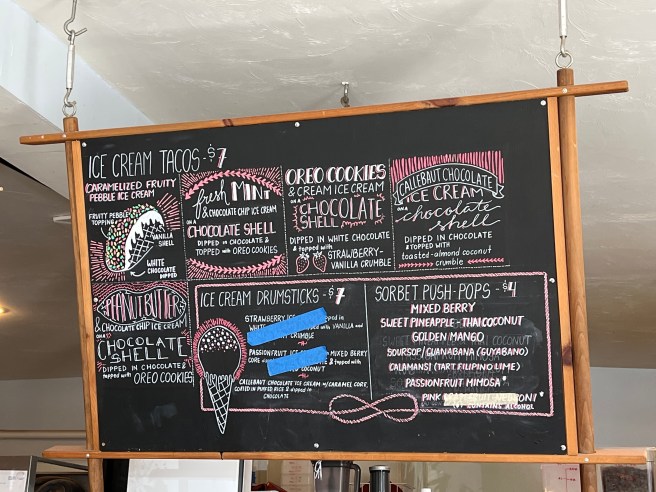 ICE CREAM TACOS - $7
CARAMELIZED FRUITY
PEBBLE ICE CREAM
FRUITY PEBBLE
TOPPING
VANILLA
SHELL
WHITE
CHOCOLATE
DIPPED
fresh MINT
& CHOCOLATE CHIP ICE CREAM
ON A
CHOCOLATE SHELL
DIPPED IN CHOCOLATE &
topped with OREO COOKIES
OREO COOKIES
& CREAM ICE CREAM
ON A
CHOCOLATE
SHELL
DIPPED IN WHITE CHOCOLATE
& topped with
STRAWBERRY-
VANILLA CRUMBLE
CALLEBAUT CHOCOLATE
ICE CREAM
ON A
chocolate
shell
DIPPED IN CHOCOLATE
& TOPPED WITH
toasted-almond coconut
crumble
PEANUT BUTTER
& CHOCOLATE CHIP ICE CREAM
ON A
CHOCOLATE
SHELL
DIPPED IN CHOCOLATE &
topped with OREO COOKIES
ICE CREAM DRUMSTICKS - $7
STRAWBERRY ICE dipped in
WHITE WITH VANILLA and
CRUMBLE
PASSIONFRUIT ICE MIXED BERRY
CORE
COCONUT
CALLEBAUT CHOCOLATE ICE CREAM w/CARAMEL CORE,
COVERED IN PUFFED RICE & dipped in
CHOCOLATE
SORBET PUSH-POPS - $4
MIXED BERRY
SWEET PINEAPPLE - THAI COCONUT
GOLDEN MANGO
SOURSOP/GUANABANA (GUYABANO)
CALAMANSI (TART FILIPINO LIME)
PASSIONFRUIT MIMOSA*
PINK NEGRONI*
(*) CONTAINS ALCOHOL